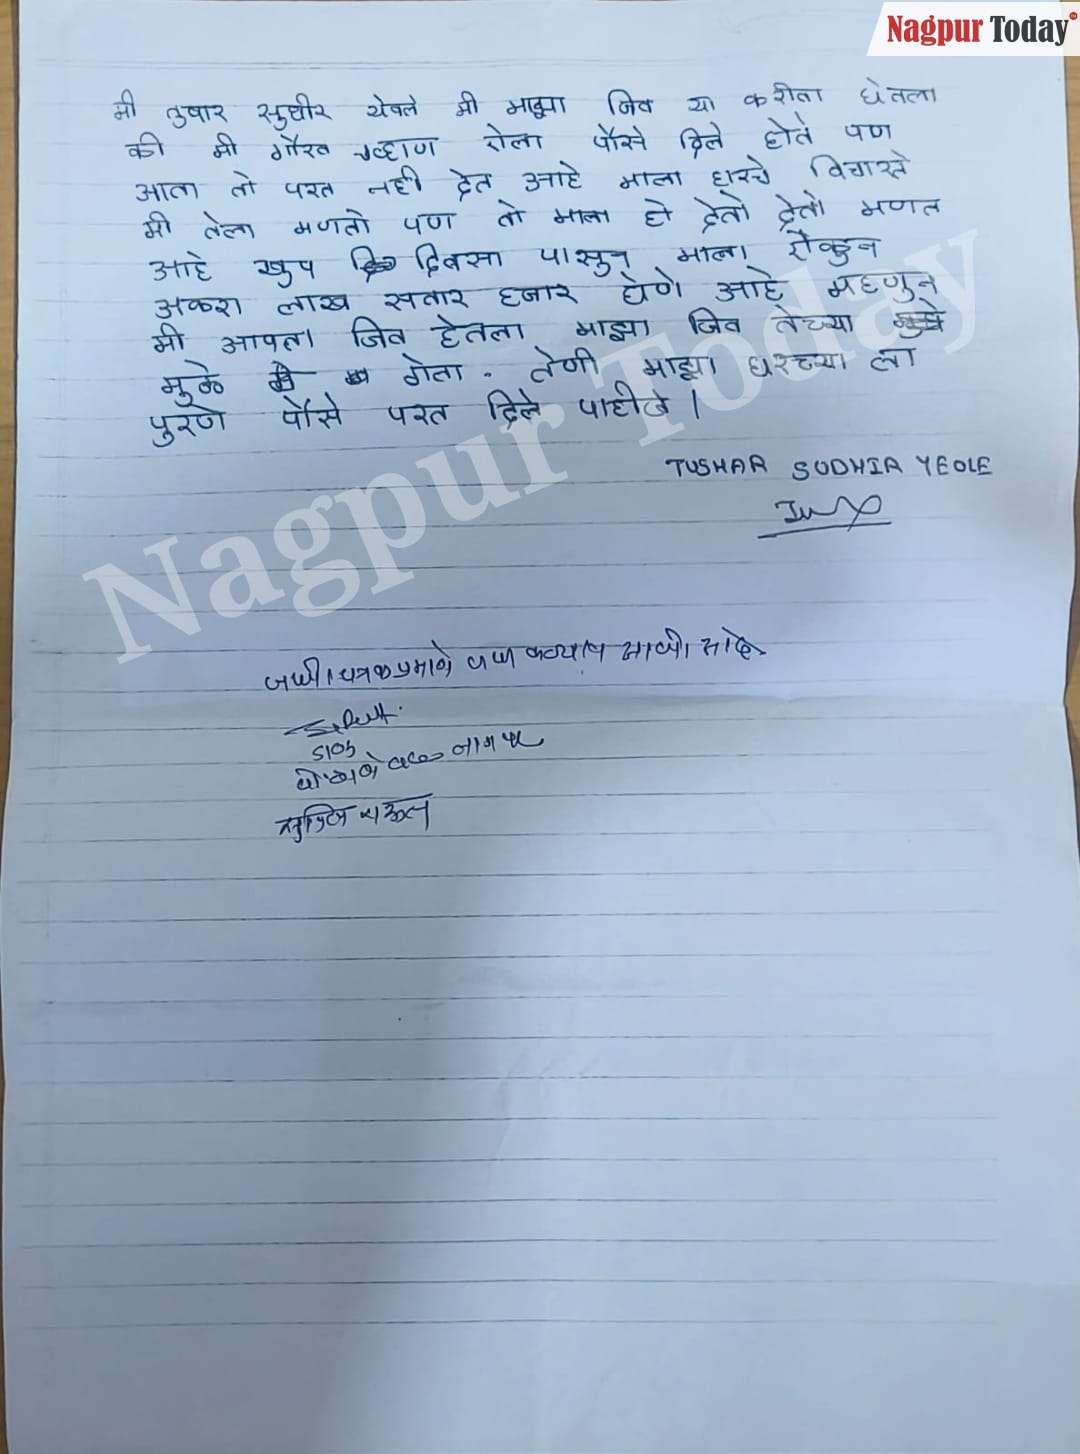 Nagpur Today
मी तुषार सुधीर येवले मी माझा जिव या करीता घेतला
की मी गौरव चव्हाण येला पैसे दिले होते पण
आता तो परत नही देत आहे माला घरचे विचारते
मी तेला मणतो पण तो माला हो देतो देतो मणत
आहे खुप दिवसा पासुन माला
अकरा लाख सतार हजार घेणे आहे म्हणुन
मी आपला जिव हेतला माझा जिव तेच्या
मुळे गेला. तेणी माझा घरच्या ला
पुरणे पैसे परत दिले पाहीजे।
TUSHAR SUDHIR YEOLE
Nagpur Today